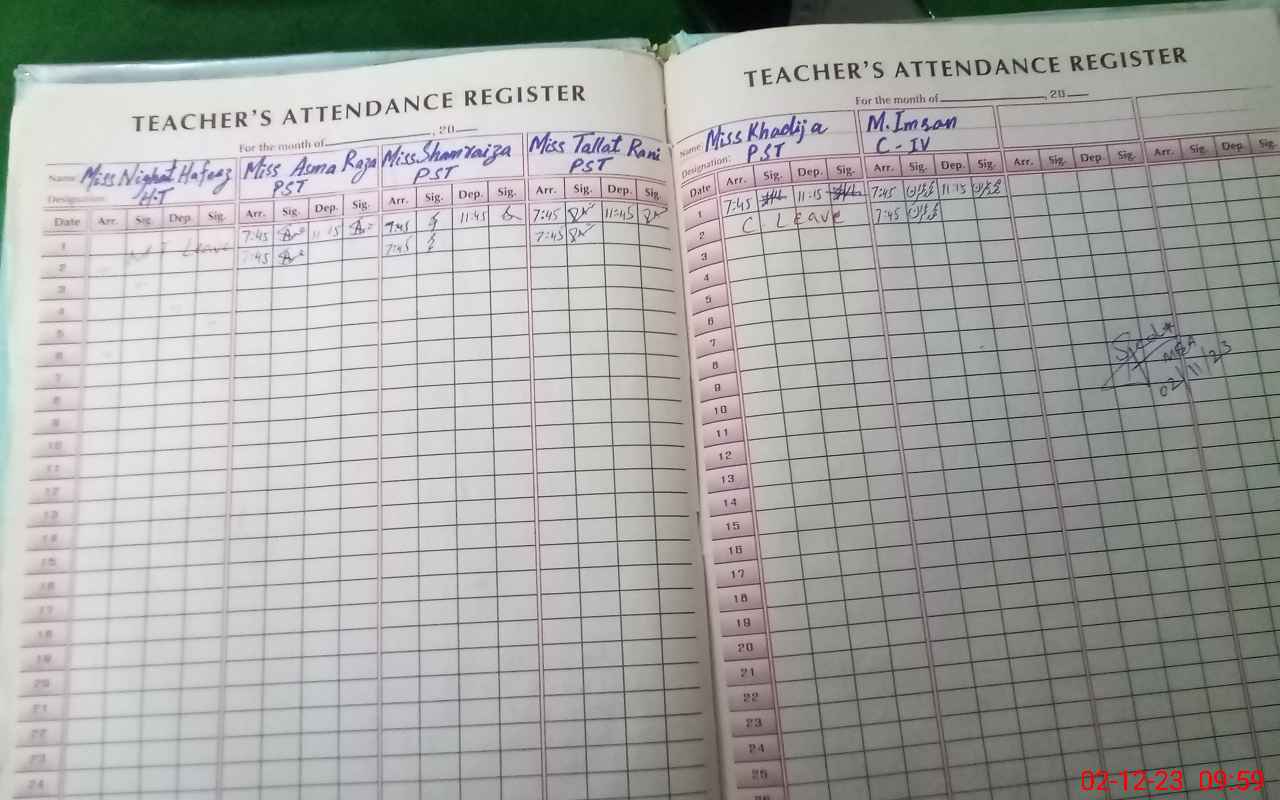 TEACHER'S ATTENDANCE REGISTER
For the month of , 20
Name Miss Nighat Hafeez Miss Asma Raza Miss Shamraiza Miss Tallat Rani
Designation: H.T PST PST PST
Date Arr. Sig. Dep. Sig. Arr. Sig. Dep. Sig. Arr. Sig. Dep. Sig. Arr. Sig. Dep. Sig.
1 Leave 7:45 11:15 7:45 11:45 7:45 11:45
2 7:45 7:45 7:45
3
4
5
6
7
8
9
10
11
12
13
14
15
16
17
18
19
20
21
22
23
24
TEACHER'S ATTENDANCE REGISTER
For the month of , 20
Name Miss Khadija M. Imran
Designation: PST C-IV
Date Arr. Sig. Dep. Sig. Arr. Sig. Dep. Sig. Arr. Sig. Dep. Sig. Arr. Sig. Dep. Sig.
1 7:45 11:15 7:45 11:15
2 C Leave 7:45
3
4
5
6
7
8
MEA
9
02/11/23
10
11
12
13
14
15
16
17
18
19
20
21
22
23
24
25
02-12-23 09:59